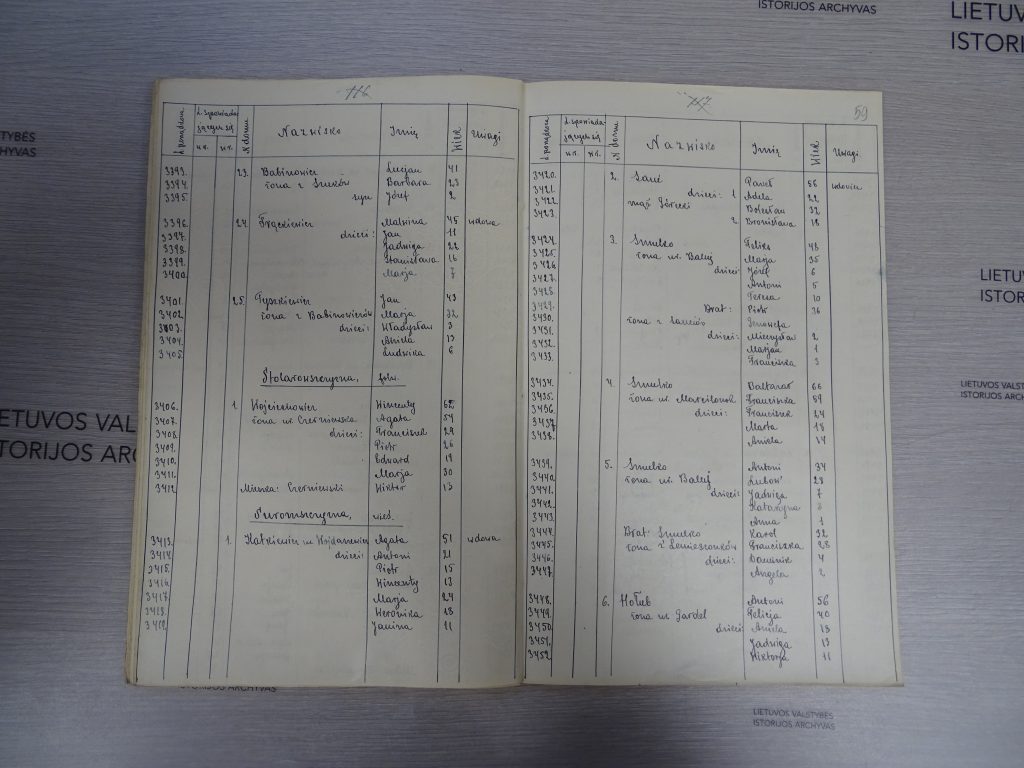 ISTORIJOS ARCHYVAS
LIETUV
ISTORI
116
L. spowiada-
jących się
№ domu
Nazwisko
Imię
Wiek
Uwagi
3393. 23. Babinowicz Lucjan 41
3394. żona z Barbara 23
3395. syn Józef 2
3396. 24. Malwina 45 wdowa
3397. dzieci: Jan 11
3398. Jadwiga 22
3399. Stanisława 16
3400. Marja 7
3401. 25. Tyszkiewicz Jan 43
3402. żona z Babinowiczów Marja 32
3403. dzieci: Władysław 9
3404. Aniela 13
3405. Ludwika 6
folw.
3406. 1. Wojciechowicz Wincenty 62
3407. żona ur. Czerniewska Agata 54
3408. dzieci: Franciszek 29
3409. Piotr 26
3410. Edward 19
3411. Marja 30
3412. Mieszka: Czerniewski Wiktor 13
3413. 1. Agata 51 wdowa
3414. dzieci: Antoni 21
3415. Piotr 15
3416. Wincenty 13
3417. Marja 24
3418. Weronika 18
3419. Janina 11
117
59
L. spowiada-
jących się
№ domu
Nazwisko
Imię
Wiek
Uwagi
3420. 2. Paweł 56 wdowiec
3421. dzieci: 1 Adela 22
3422. mąż Górecki Bolesław 32
3423. 2 Bronisława 18
3424. 3. Smulko Feliks 48
3425. żona ur. Baluj Marja 35
3426. dzieci: Józef 6
3427. Antoni 5
3428. Teresa 10
3429. Brat: Piotr 36
3430. żona z Genowefa
3431. dzieci: Mieczysław 2
3432. Marjan 1
3433. Franciszka 3
3434. 4. Smulko Baltazar 66
3435. żona ur. Franciszka 59
3436. dzieci: Franciszek 24
3437. Marta 18
3438. Aniela 14
3439. 5. Smulko Antoni 34
3440. żona ur. Baluj Ludwika 28
3441. dzieci: Jadwiga 7
3442. Katarzyna 3
3443. Anna 1
3444. Brat: Smulko Karol 32
3445. żona z Franciszka 28
3446. dzieci: Dominik 4
3447. Angela 2
3448. 6. Hołub Antoni 56
3449. żona ur. Gardel Felicja 40
3450. dzieci: Aniela 19
3451. Jadwiga 13
3452. Wiktorja 11
TYBĖS
HYVAS
ETUVOS VAL
STORIJOS ARCH
ISTORIJOS ARCHYVAS
LIETUV
ISTOR
LIETUVOS VALSTY
ISTORIJOS ARCHYV
LIETUVOS VALSTYBĖS
ISTORIJOS ARCHYVAS